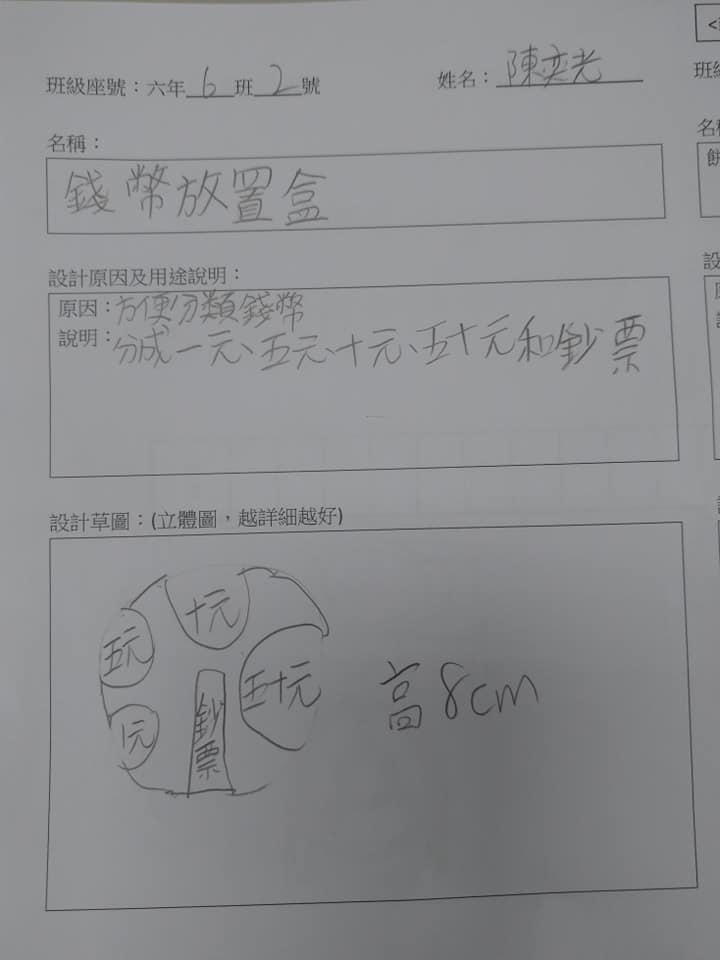 班級座號：六年6班2號
姓名：陳奕光
名稱：
錢幣放置盒
設計原因及用途說明：
原因：方便分類錢幣
說明：分成一元、五元、十元、五十元和鈔票
設計草圖：(立體圖，越詳細越好)
十元
五元
五十元
1元
鈔票
高8cm
班級
名稱
設